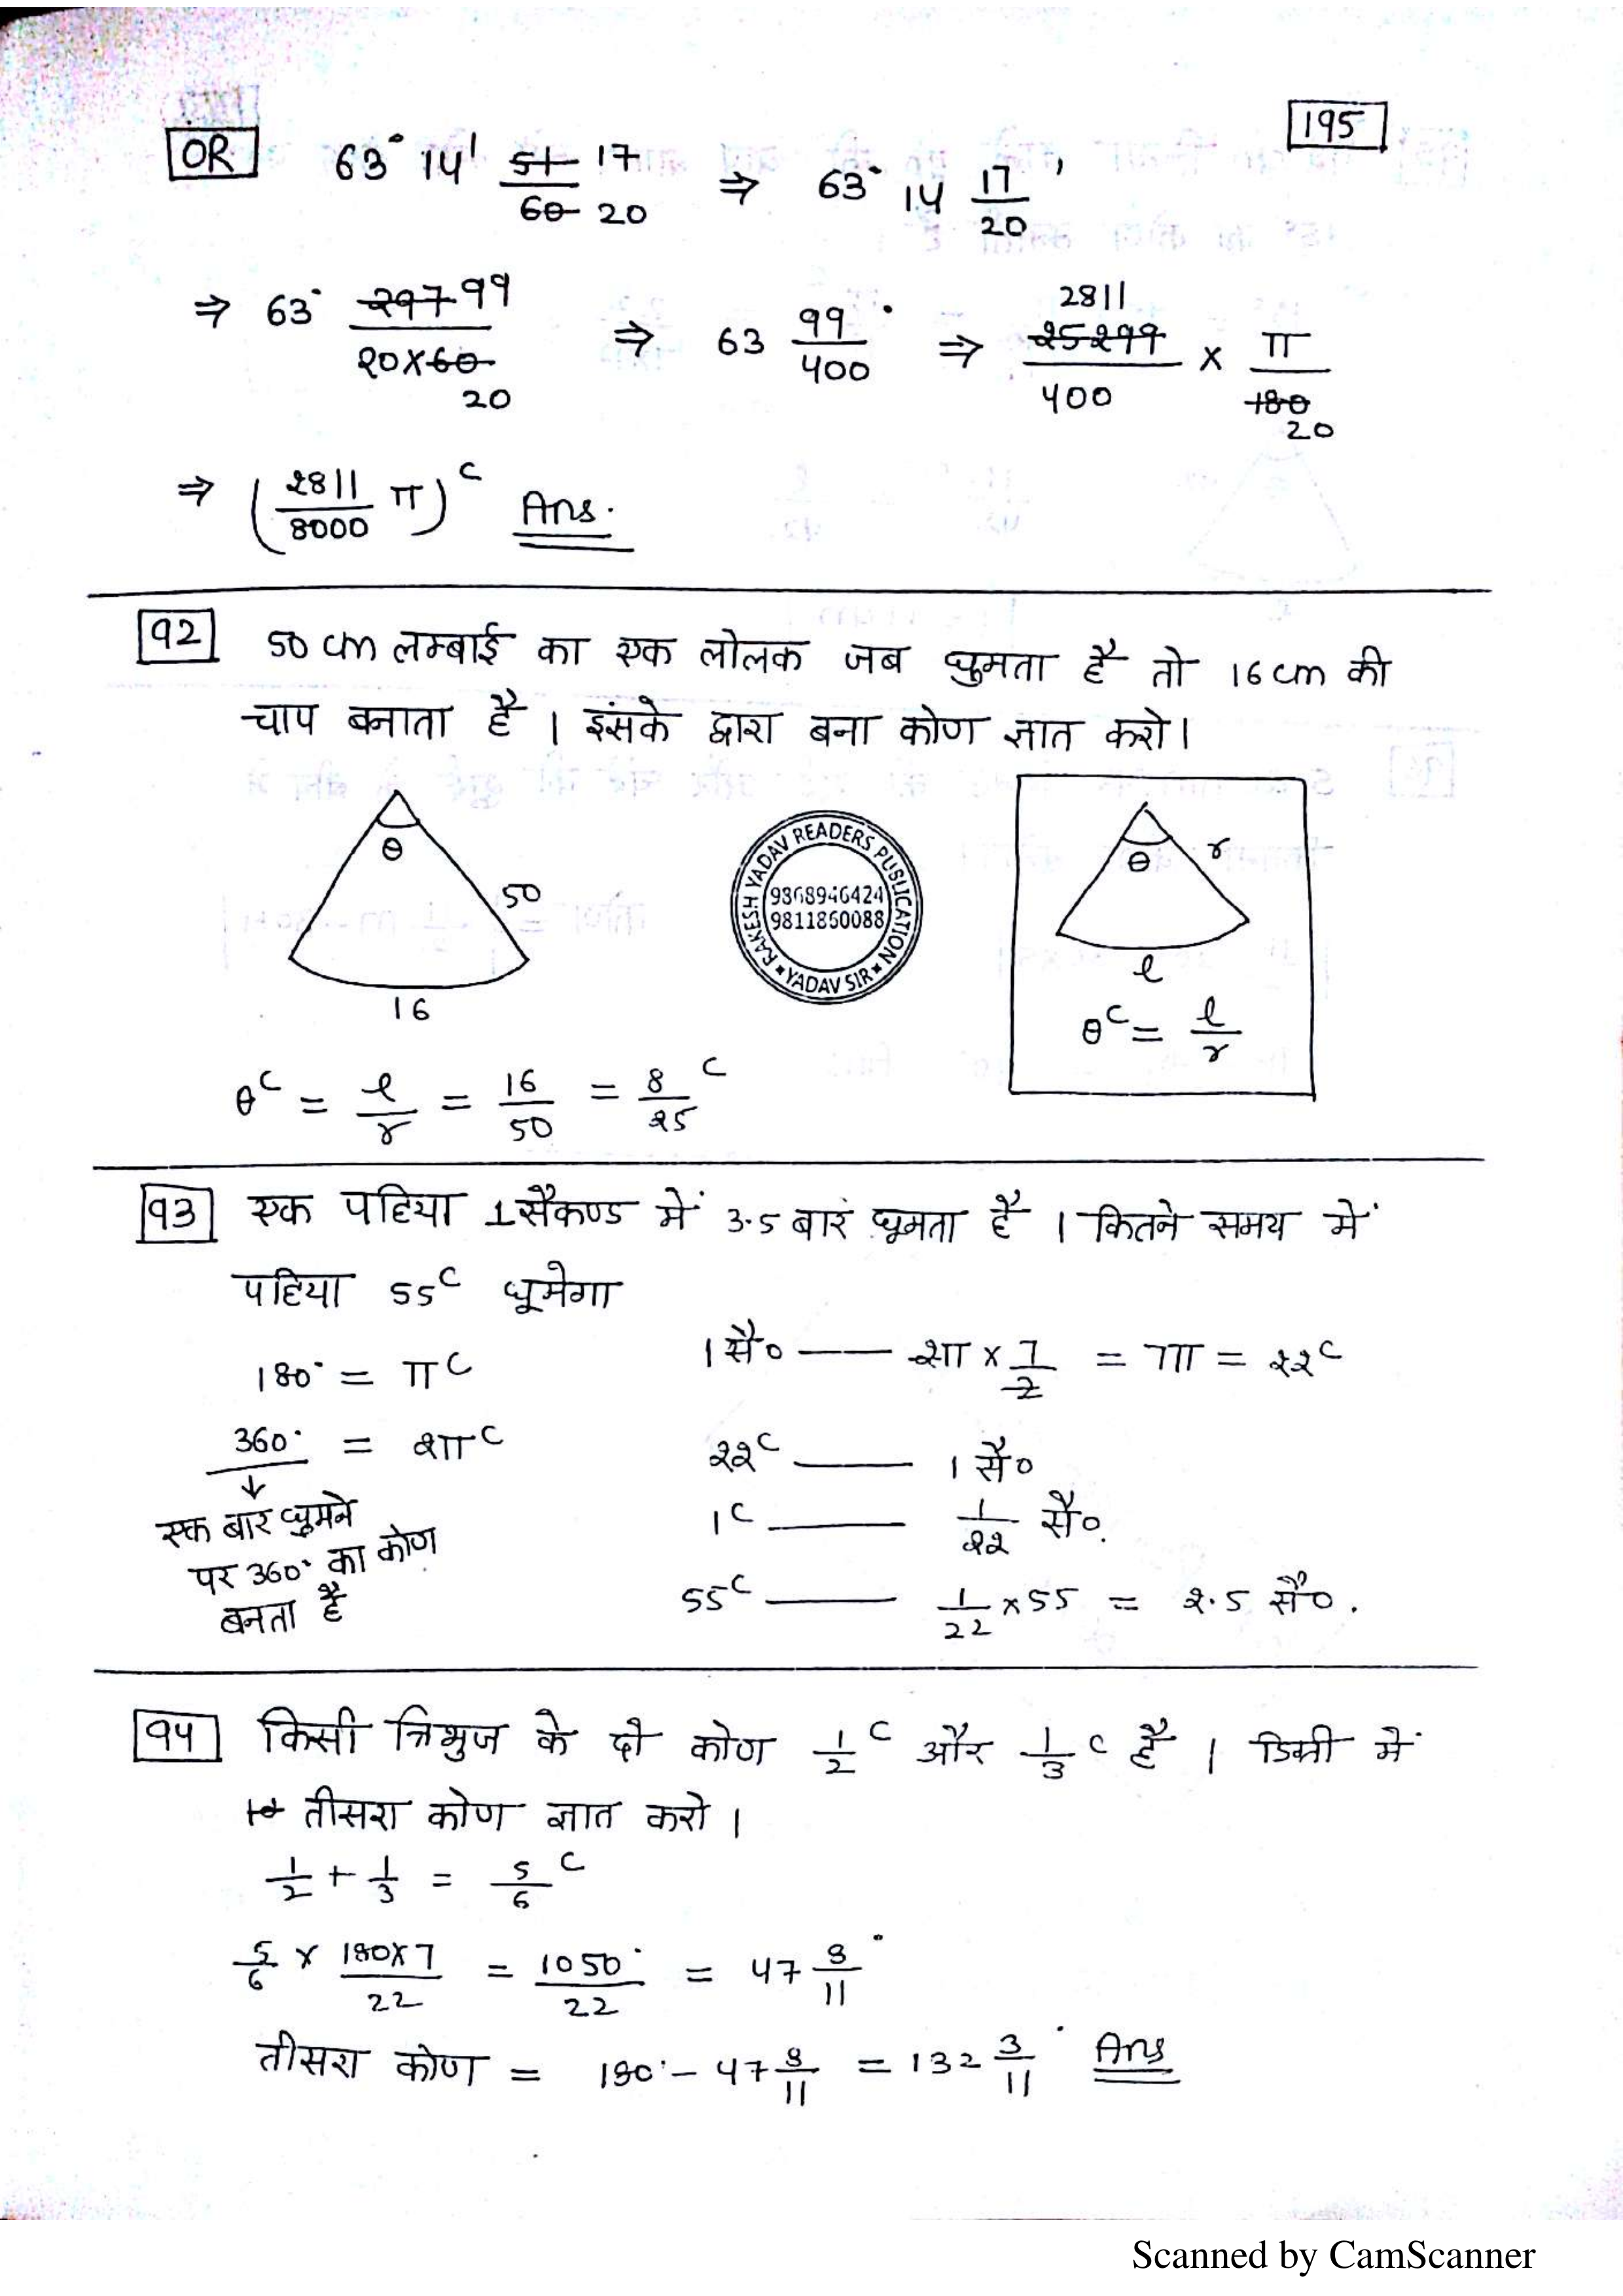 195
OR 63° 14' 51/60 17/20 ⇒ 63° 14 17/20 '
⇒ 63° 297 99 / 20×60 20 ⇒ 63 99/400 ° ⇒ 2811 25299 / 400 × π / 180 20
⇒ (2811/8000 π)ᶜ Ans.
92 50 cm लम्बाई का एक लोलक जब घुमता है तो 16 cm की
चाप बनाता है । इसके द्वारा बना कोण ज्ञात करो।
θ 50 16
RAKESH YADAV READERS PUBLICATION
9868946424
9811860088
* YADAV SIR *
θ r l
θᶜ = l/r
θᶜ = l/r = 16/50 = 8/25 ᶜ
93 एक पहिया 1 सैकण्ड में 3.5 बार घूमता है । कितने समय में
पहिया 55ᶜ घूमेगा
180° = πᶜ
360° = 2πᶜ
↓
एक बार घुमने
पर 360° का कोण
बनता है
1 सै० — 2π × 7/2 = 7π = 22ᶜ
22ᶜ — 1 सै०
1ᶜ — 1/22 सै०.
55ᶜ — 1/22 × 55 = 2.5 सै०.
94 किसी त्रिभुज के दो कोण 1/2 ᶜ और 1/3 ᶜ है । डिग्री में
तीसरा कोण ज्ञात करो ।
1/2 + 1/3 = 5/6 ᶜ
5/6 × 180×7/22 = 1050°/22 = 47 8/11 °
तीसरा कोण = 180° - 47 8/11 = 132 3/11 ° Ans
Scanned by CamScanner